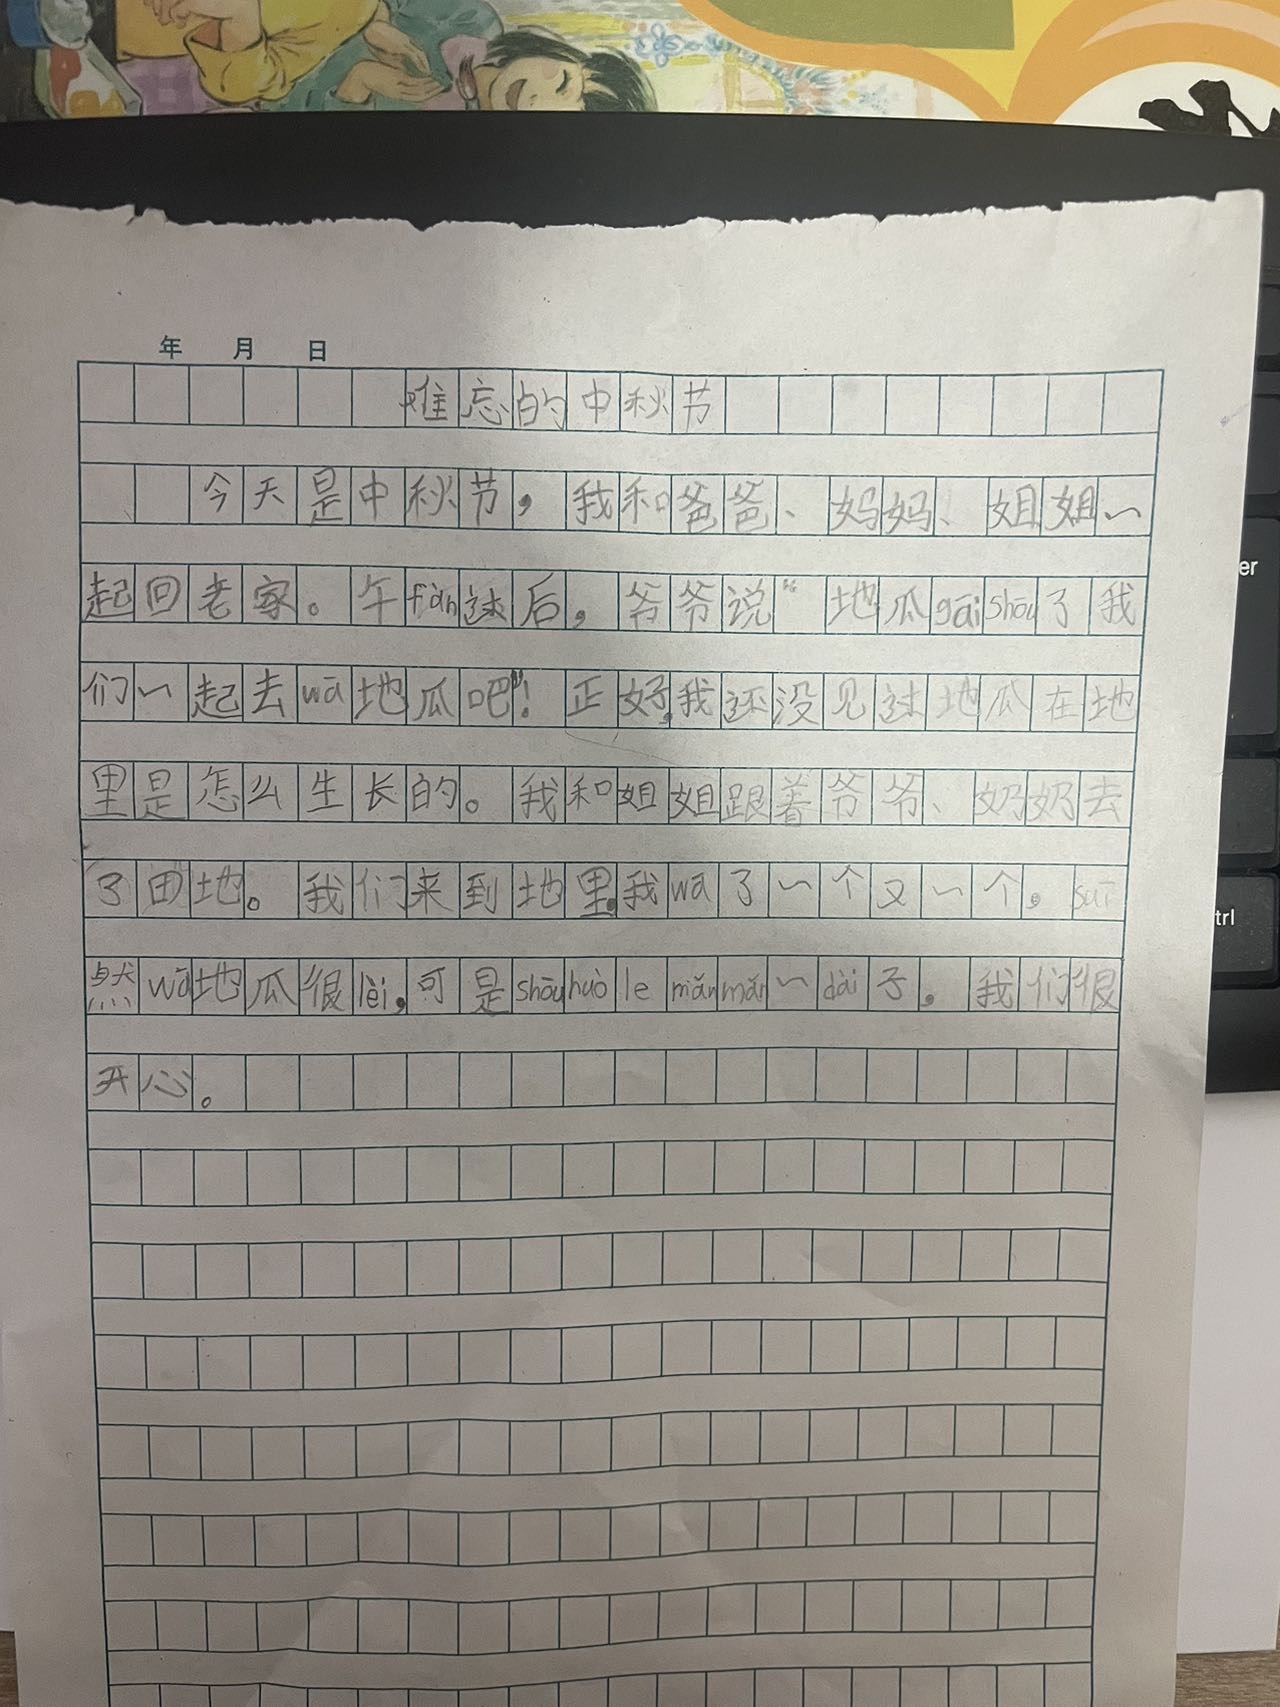 er
trl
年 月 日
难忘的中秋节
今天是中秋节，我和爸爸、妈妈、姐姐一
起回老家。午fàn过后，爷爷说“地瓜gāishōu了我
们一起去wā地瓜吧”！正好，我还没见过地瓜在地
里是怎么生长的。我和姐姐跟着爷爷、奶奶去
了田地。我们来到地里，我wā了一个又一个。suī
然wā地瓜很lèi，可是shōuhuòle mǎnmǎn一dài子。我们很
开心。